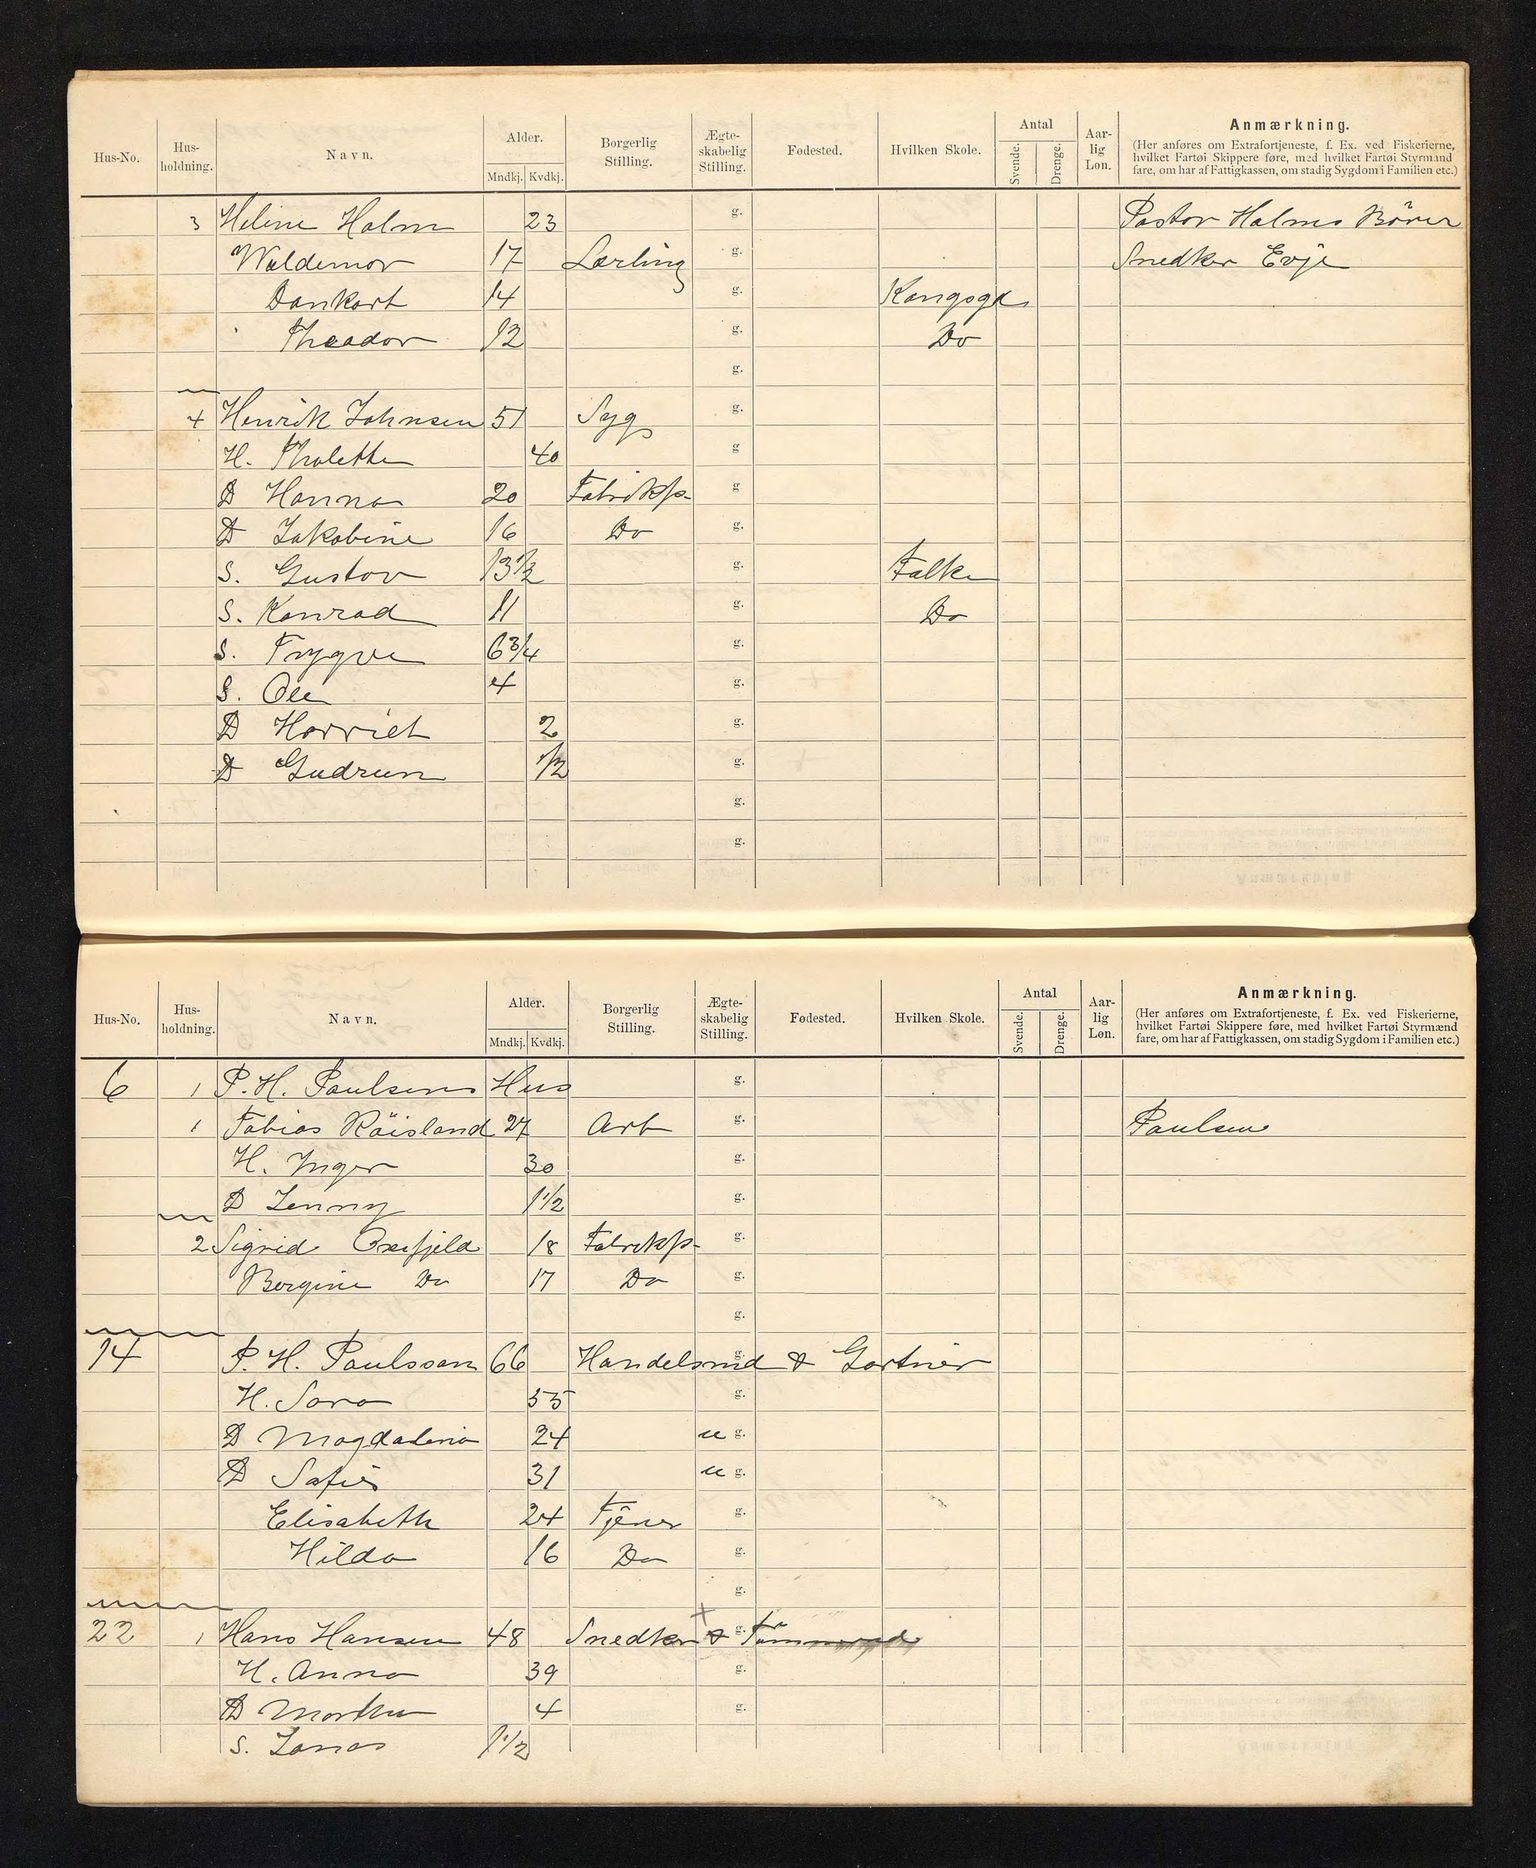 Hus-No. Hus-holdning. Navn. Alder. Mndkj. Kvdkj. Borgerlig Stilling. Ægte-skabelig Stilling. Fødested. Hvilken Skole. Antal Svende. Drenge. Aar-lig Løn. Anmærkning.
(Her anføres om Extrafortjeneste, f. Ex. ved Fiskerierne,
hvilket Fartøi Skippere føre, med hvilket Fartøi Styrmænd
fare, om har af Fattigkassen, om stadig Sygdom i Familien etc.)
3 Heline Holm 23 g. Pastor Holms Börn
Waldemar 17 Lærling g. Snedker Evje
Dankart 14 g. Kongsgd
Theodor 12 g. Do
g.
4 Henrik Johnsen 51 Syg g.
H. Tholette 40 g
D Hanna 20 Fabrikp. g
D Jakobine 16 Do g.
S. Gustav 13 1/2 g. Folke
S. Konrad 11 g. Do
S. Trygve 6 3/4 g.
S. Ole 4 g.
D Harriet 2 g.
D Gudrun 1/2 g.
g.
g.
Hus-No. Hus-holdning. Navn. Alder. Mndkj. Kvdkj. Borgerlig Stilling. Ægte-skabelig Stilling. Fødested. Hvilken Skole. Antal Svende. Drenge. Aar-lig Løn. Anmærkning.
(Her anføres om Extrafortjeneste, f. Ex. ved Fiskerierne,
hvilket Fartøi Skippere føre, med hvilket Fartøi Styrmænd
fare, om har af Fattigkassen, om stadig Sygdom i Familien etc.)
6 1 P. H. Paulsens Hus g.
1 Tobias Röisland 27 Arb g. Paulsen
H. Inger 30 g.
D Jenny 1 1/2 g.
2 Sigrid Oxefjeld 18 Fabrikp. g.
Bergine Do 17 Do g.
g.
14 P. H. Paulsson 66 Handelsmd & Gartner g.
H. Sara 55 g.
D Magdalena 24 u g.
D Sofie 31 u g.
Elisabeth 24 Tjener g.
Hilda 16 Do g.
g.
22 1 Hans Hansen 48 Snedker & g.
H. Anna 39 g.
D Marthe 4 g.
S. Jonas 1 1/2